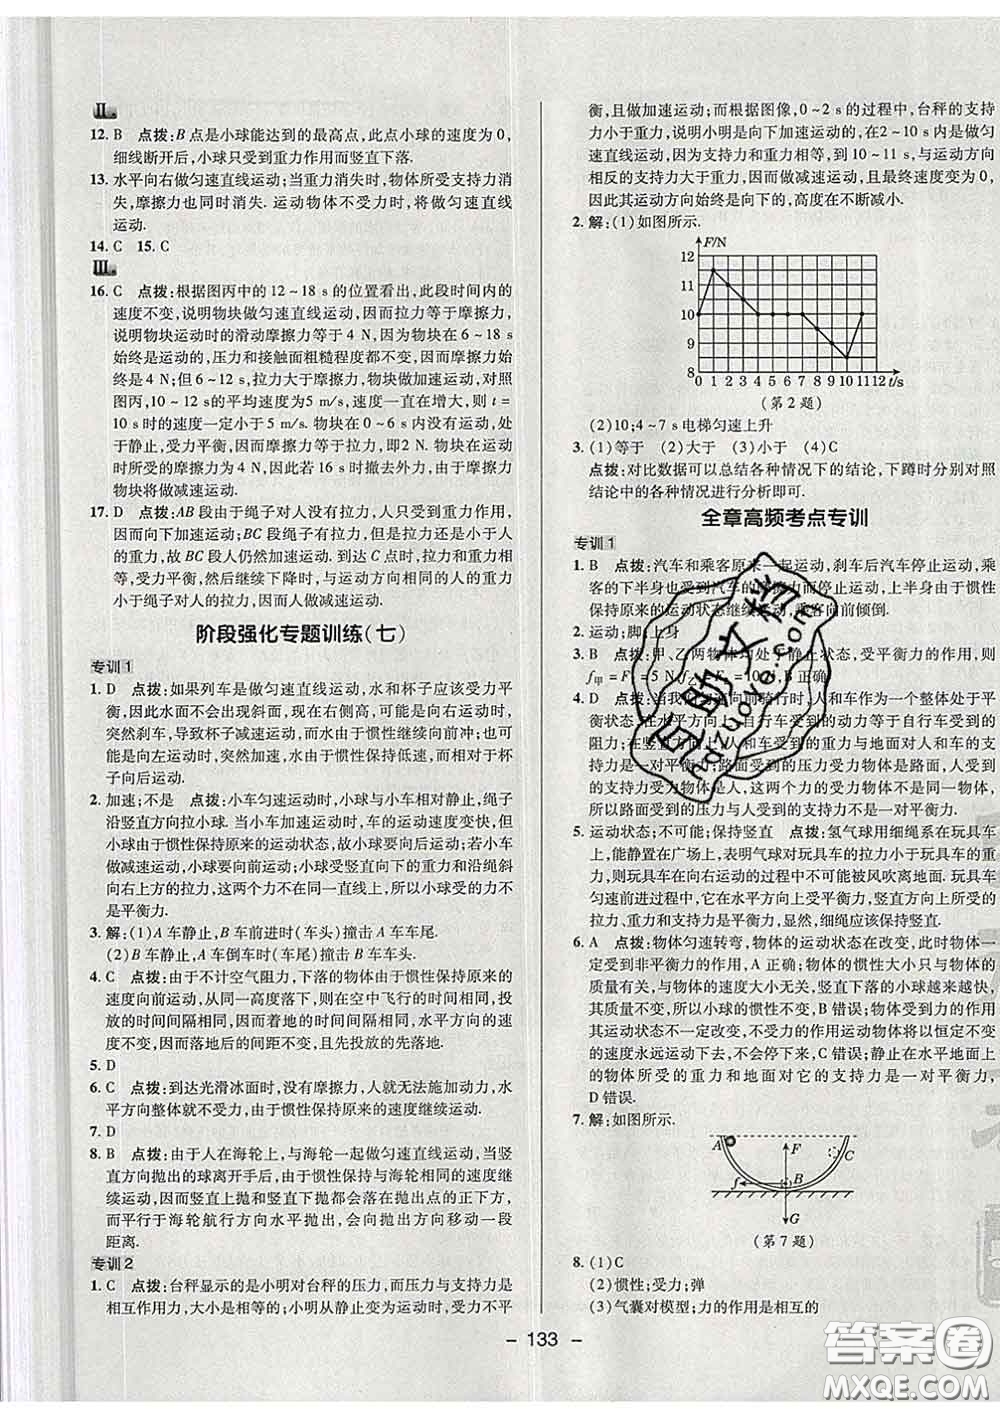 Ⅱ
12. B　点拨:B点是小球能达到的最高点,此点小球的速度为0,
细线断开后,小球只受到重力作用而竖直下落.
13. 水平向右做匀速直线运动;当重力消失时,物体所受支持力消
失,摩擦力也同时消失. 运动物体不受力时,将做匀速直线
运动.
14. C　15. C
Ⅲ
16. C　点拨:根据图丙中的12~18 s的位置看出,此段时间内的
速度不变,说明物块做匀速直线运动,因而拉力等于摩擦力,
说明物块运动时的滑动摩擦力等于4 N,因为物块在6~18 s
始终是运动的,压力和接触面粗糙程度都不变,因而摩擦力始
终是4 N;但6~12 s,拉力大于摩擦力,物块做加速运动,对照
图丙,10~12 s的平均速度为5 m/s,速度一直在增大,则t=
10 s时的速度一定小于5 m/s. 物块在0~6 s内没有运动,处
于静止,受力平衡,因而摩擦力等于拉力,即2 N. 物块在运动
时所受的摩擦力不变,因而若16 s时撤去外力,由于摩擦力
物块将做减速运动.
17. D　点拨:AB段由于绳子对人没有拉力,人只受到重力作用,
因而向下做加速运动;BC段绳子有拉力,但拉力仍然小于人
的重力,故BC段人仍然加速运动. 到达C点时,拉力和重力相
等,受力平衡,然后继续下降时,与运动方向相同的人的重力
小于绳子对人的拉力,因而人做减速运动.
阶段强化专题训练(七)
专训1
1. D　点拨:如果列车是做匀速直线运动,水和杯子应该受力平
衡,因此水面不会出现斜面,现在右侧高,可能是向右运动时,
突然刹车,导致杯子减速运动,而水由于惯性继续向前冲;也可
能是向左运动时,突然加速,水由于惯性保持低速,而相对于杯
子向后运动.
2. 加速;不是　点拨:小车匀速运动时,小球与小车相对静止,绳子
沿竖直方向拉小球. 当小车加速运动时,车的运动速度变快,但
小球由于惯性要保持原来的运动状态,故小球要向后运动;若小车
做减速运动,小球要向前运动;小球受竖直向下的重力和沿绳斜
向右上方的拉力,这两个力不在同一直线上,所以小球受的力不
是平衡力.
3. 解:(1)A车静止,B车前进时(车头)撞击A车车尾.
(2)B车静止,A车倒车时(车尾)撞击B车车头.
4. C　点拨:由于不计空气阻力,下落的物体由于惯性保持原来的
速度向前运动,从同一高度落下时,则在空中飞行的时间相同,
投放的时间间隔相同,因而着地的时间间隔相同,水平方向的速
度不变,因而落地后的间距不变,先投放的先落地.
5. D
6. C　点拨:到达光滑冰面时,没有摩擦力,人就无法施加动力,水
平方向整体就不受力,由于惯性保持原来的速度继续运动.
7. D
8. B　点拨:由于人在海轮上,与海轮一起做匀速直线运动,当竖
直方向抛出的球离开手后,由于惯性保持与海轮相同的速度继
续运动,因而竖直向上和竖直下抛都会落在抛出点的正下方,
而平行于海轮航行方向水平抛出,会向抛出方向移动一段
距离.
专训2
1. C　点拨:台秤显示的是小明对台秤的压力,而压力与支持力是
相互作用力,大小是相等的;小明从静止变为运动时,受力不平
衡,且做加速运动;而根据图像,0~2 s的过程中,台秤的支持
力小于重力,说明小明是向下加速运动的,在2~10 s内是做匀
速直线运动,因为支持力和重力相等,到10~11 s,与运动方向
相反的支持力大于重力,因而做减速运动,且最终速度为0,
因此其运动方向始终是向下的,高度在不断减小.
2. 解:(1)如图所示.
F/N
12
11
10
9
8
0 1 2 3 4 5 6 7 8 9 10 11 12 t/s
(第2题)
(2)10;4~7 s电梯匀速上升
3. (1)等于　(2)大于　(3)小于　(4)C
点拨:对比数据可以总结各种情况下的结论,下蹲时分别对照
结论中的各种情况进行分析即可.
全章高频考点专训
专训1
1. B　点拨:汽车和乘客原来一起运动,刹车后汽车停止运动,乘
客的下半身也受到汽车的摩擦力而停止运动,上半身由于惯性
保持原来的运动状态继续运动,乘客向前倾倒.
2. 运动;脚;上身
3. B　点拨:甲、乙两物体均处于静止状态,受平衡力的作用,则
f甲=F=5 N,f乙=F=10 N,B正确.
4. D　点拨:当我们在向前骑行时,人和车作为一个整体处于平
衡状态,在水平方向上,自行车受到的动力等于自行车受到的
阻力;在竖直方向上,人和车受到的重力与地面对人和车的支
持力为一对平衡力;路面受到的压力受力物体是路面,人受到
的支持力受力物体是人,这两个力的受力物体不是同一物体,
所以路面受到的压力与人受到的支持力不是一对平衡力.
5. 运动状态;不可能;保持竖直　点拨:氢气球用细绳系在玩具车
上,能静置在广场上,表明气球对玩具车的拉力小于玩具车的重
力,则玩具车在向右运动的过程中不可能被风吹离地面. 玩具车
匀速前进过程中,它在水平方向上受平衡力,竖直方向上所受的
拉力、重力和支持力也是平衡力,显然,细绳应该保持竖直.
6. A　点拨:物体匀速转弯,物体的运动状态在改变,此时物体一
定受到非平衡力的作用,A正确;物体的惯性大小只与物体的
质量有关,与物体的速度大小无关,竖直下落的小球越来越快,
其质量不变,所以小球的惯性不变,B错误;物体受到力的作用
其运动状态不一定改变,不受力的作用运动物体将以恒定不变
的速度永远运动下去,不会停下来,C错误;静止在水平地面上
的物体所受的重力和地面对它的支持力是一对平衡力,
D错误.
7. 解:如图所示.
A
F
C
f
B
G
(第7题)
8. (1)C
(2)惯性;受力;弹
(3)气囊对模型;力的作用是相互的
- 133 -
答案圈
MXQE.COM